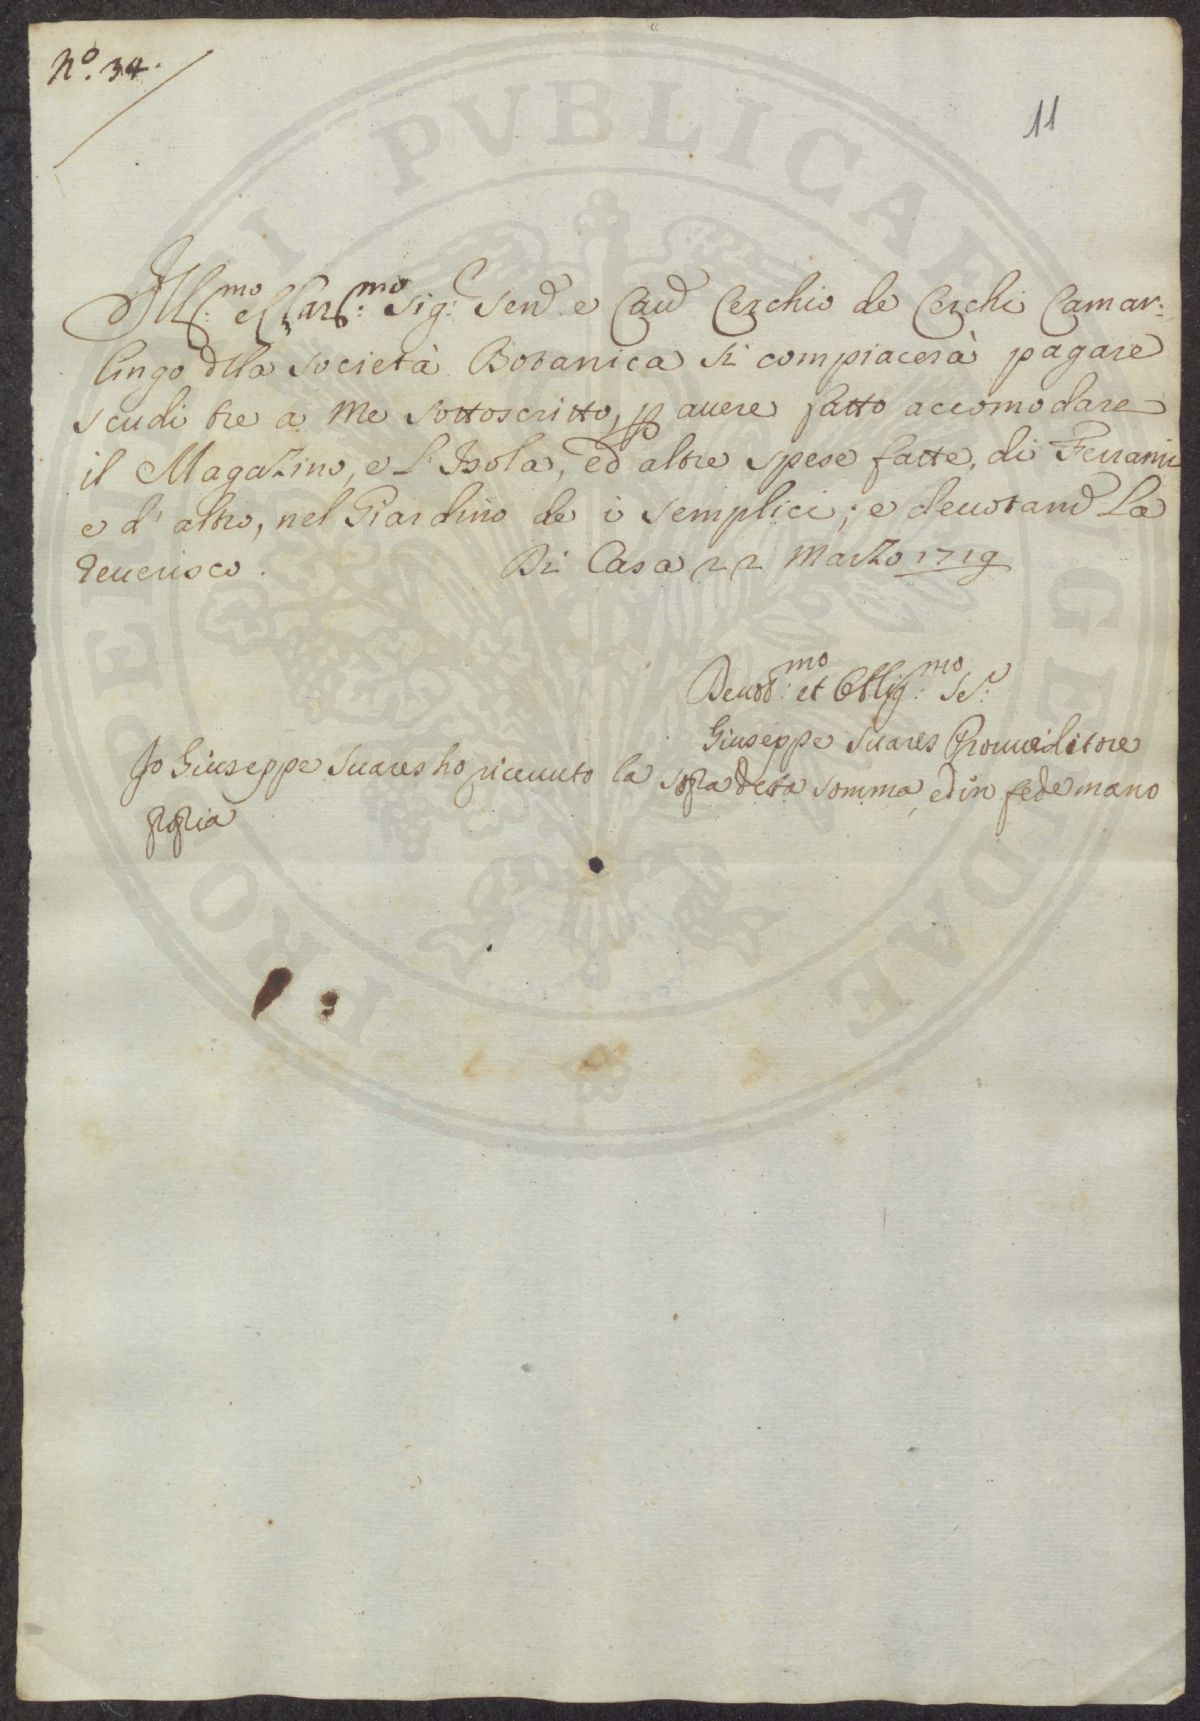 N.º 34.
11
Ill:mo e Clar:mo Sig:r Sen.e e Cau Cerchio de Cerchi Camar:
lingo dlla Società Botanica Si compiacerà pagare
scudi tre a Me Sottoscritto, p auere fatto accomodare
il MagaZino, e L'Isola, ed altre spese fatte, di Ferrami
e d'altro, nel Giardino de i semplici; e deuotam La
reuerisco. Di Casa 22 MarZo 1719
Deuot:mo et Oblig:mo Se:r
Giuseppe Suares Proueditore
Io Giuseppe Suares ho riceuuto la sopra detta somma ed in fede mano
propia
PROPERTATI PVBLICAE GELIDAE